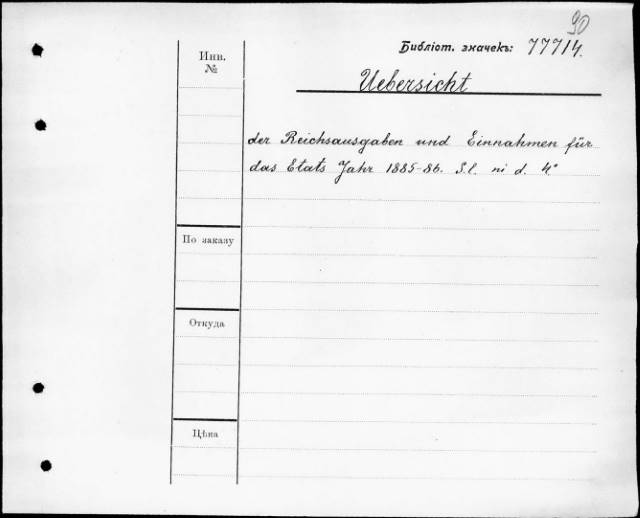 90
Библіот. значекъ: 77714.
Инв.
№
Uebersicht
der Reichsausgaben und Einnahmen für
das Etats Jahr 1885-86. S. l. ni d. 4°
По заказу
Откуда
Цѣна